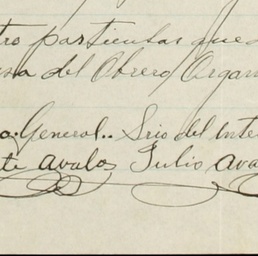 tro partiensas que
del Obrero Organi
o. General.. Srio del Inte
te avalos Julio Ava